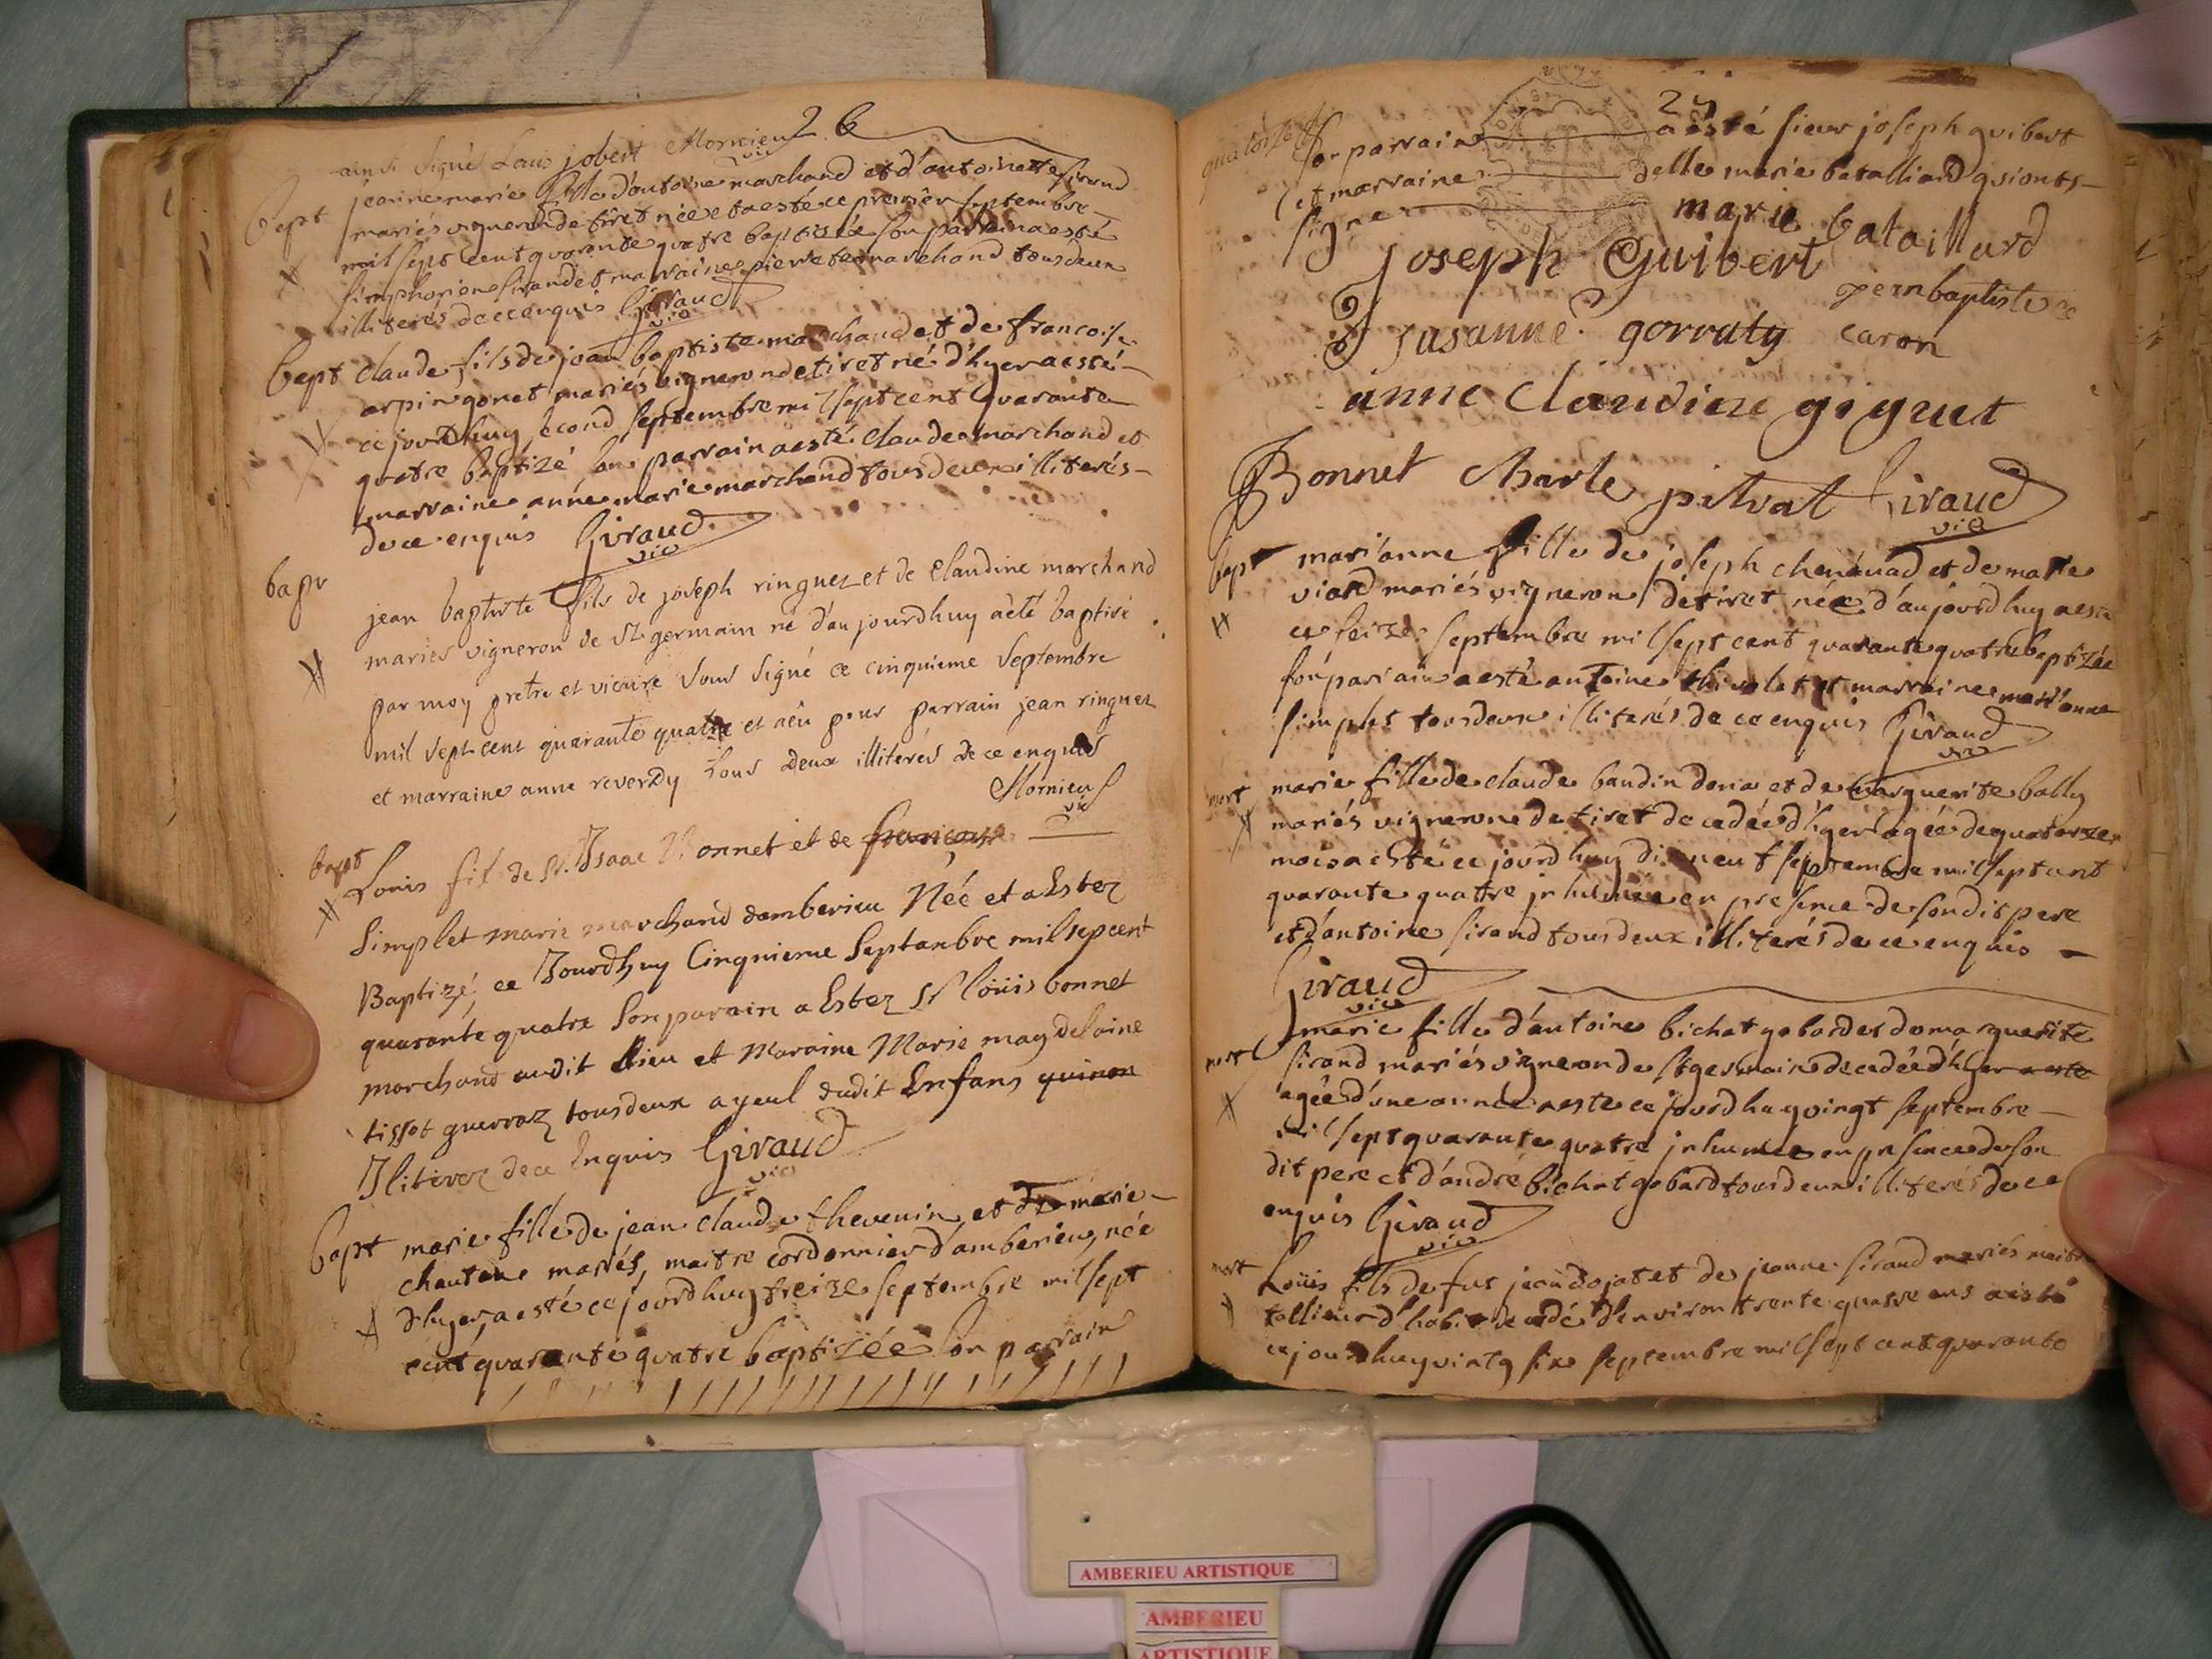 26
ainsi signé Louis jobert Mornieu
vic
Bept jeanne marie fille d'antoine marchand et d'antoinette sirand
mariés vigneron de tiret née et a esté ce premier septembre
mil sept cent quarante quatre baptisée son parrain a esté
simphorien sirand et marraine pierrette marchand tous deux
illiterés de ce enquis Giraud
vic
bept claude fils de jean baptiste marchand et de francoise
arpin gonet mariés vigneron de tiret né d'hyer a esté
ce jourdhuy second septembre mil sept cent quarante
quatre baptizé son parrain a esté claude marchand et
marraine anne marie marchand tous deux illiterés
de ce enquis Giraud
vic
bapt
jean baptiste fils de joseph ringuez et de claudine marchand
mariés vigneron de St germain né d'aujourdhuy a été baptisé
par moy pretre et vicaire sous signé ce cinquieme Septembre
mil sept cent quarante quatre et a eu pour parrain jean ringuez
et marraine anne reverdy tous deux illiterés de ce enquis
Mornieu
vic
bapt
Louis fil de Sr. Isaac Bonnet et de francoise
Simplet marie marchand damberieu Néé et a Estez
Baptizé, ce Jourdhuy Cinquieme Septanbre mil sepcent
quarante quatre Son parain a Estez Sr loüis bonnet
marchand audit lieu et Maraine Marie magdelaine
tissot guerraz tous deux ayeul dudit Enfans quinon
Ilitérez de ce Enquis Giraud
vic
bapt marie fille de jean claude thevenin et de marie
chautane mariés, maitre cordonnier d'amberieu, née
d'hyer, a esté ce jourdhuy treize septembre mil sept
cent quarante quatre baptizée son parrain
27
son parrain a esté sieur joseph guibert
et marraine delle marie batalliard qui onts
signe
marie bataillard
Joseph Guibert
jean baptiste
Susanne gorraty caron
anne claudine giguet
Bonnet Charle pitrat Giraud
vic
bapt mari'anne fille de joseph chenavad et de marie
viard mariés vigneron de tiret née d'aujourdhuy a esté
ce seize septembre mil sept cent quarante quatre baptizée
son parrain a esté antoine et marraine mari'anne
simplet tous deux illiterés de ce enquis Giraud
vic
mort marie fille de claude baudin et de marguerite bally
mariés vigneron de tiret decedée d'hyer agée de quatorze
mois a esté ce jourdhuy dixneuf septembre mil sept cent
quarante quattre inhumée en presence de son dit pere
et d'antoine sirand tous deux illiterés de ce enquis
Giraud
vic
mort marie fille d'antoine bichat gabard et de marguerite
sirand mariés vigneron de St germain decedée d'hyer a esté
agée d'une année a esté ce jourdhuy vingt septembre
mil sept quarante quatre inhumée en presence de son
dit pere et d'andré bichat gabard tous deux illiterés de ce
enquis Giraud
vic
mort Loüis fils de fut jean et de jeanne sirand mariés maitre
tallieur d'habit decedé d'environ trente quatre ans a esté
ce jourdhuy vintg six septembre mil sept cent quarante
AMBERIEU ARTISTIQUE
AMBERIEU
ARTISTIQUE